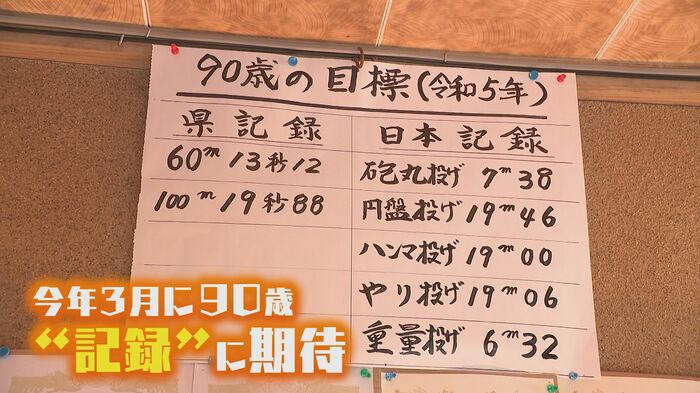 90歳の目標(令和5年)
県記録
60m 13秒12
100m 19秒88
日本記録
砲丸投げ 7m38
円盤投げ 19m46
ハンマ投げ 19m00
やり投げ 19m06
重量投げ 6m32
今年3月に90歳
“記録”に期待